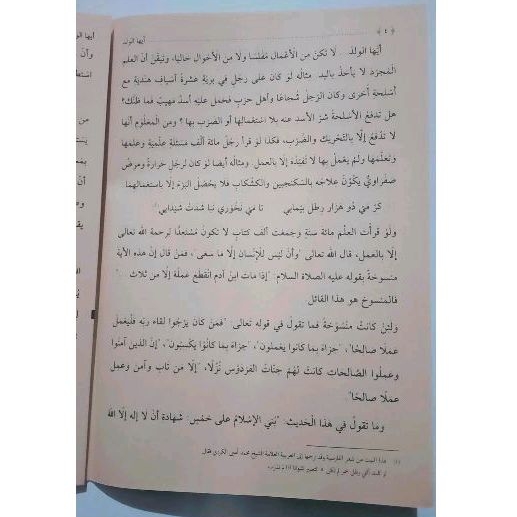 أيها الولد
﴿ ٤ ﴾
أيّها الولد لا تكن من الأعمال مفلسا ولا من الأحوال خاليا، وتيقّن أنّ العلم
المجرّد لا يأخذ باليد مثاله لو كان على رجل في بريّة عشرة أسياف هنديّة مع
أسلحة أخرى وكان الرّجل شجاعا وأهل حرب فحمل عليه أسد مهيب فما ظنّك؟
هل تدفع الأسلحة شرّ الأسد عنه بلا استعمالها أو الضرب بها ؟ ومن المعلوم أنّها
لا تدفع إلّا بالتّحريك والضّرب، فكذا لو قرأ رجل مائة ألف مسئلة علميّة وعلمها
وتعلّمها ولم يعمل بها لا تفيده إلّا بالعمل ومثاله أيضا لو كان لرجل حرارة ومرض
صفراويّ يكون علاجه بالسّكنجبين والكشكاب فلا يحصل البرء إلّا باستعمالهما
كر مي دو هزار رطل بيمايي تا مي نخوري نبا شدت شيدايي (١)
ولو قرأت العلم مائة سنة وجمعت ألف كتاب لا تكون مستعدّا لرحمة الله تعالى
إلّا بالعمل، قال الله تعالى "وأن ليس للإنسان إلّا ما سعى"، فمن قال إنّ هذه الآية
منسوخة بقوله عليه الصلاة السلام "إذا مات ابن آدم انقطع عمله إلّا من ثلاث "
فالمنسوخ هو هذا القائل
ولئن كانت منسوخة فما تقول في قوله تعالى "فمن كان يرجوا لقاء ربّه فليعمل
عملا صالحا"، "جزاء بما كانوا يعملون"، "جزاء بما كانوا يكسبون"، "إنّ الذين آمنوا
وعملوا الصّالحات كانت لهم جنّات الفردوس نزلا، "إلّا من تاب وآمن وعمل
عملا صالحا"
وما تقول في هذا الحديث "بني الإسلام على خمس شهادة أن لا إله إلّا الله
(١) هذا البيت من شعر الفارسية وقد ترجمها إلى العربية العلامة الشيخ محمد أمين الكردي فقال